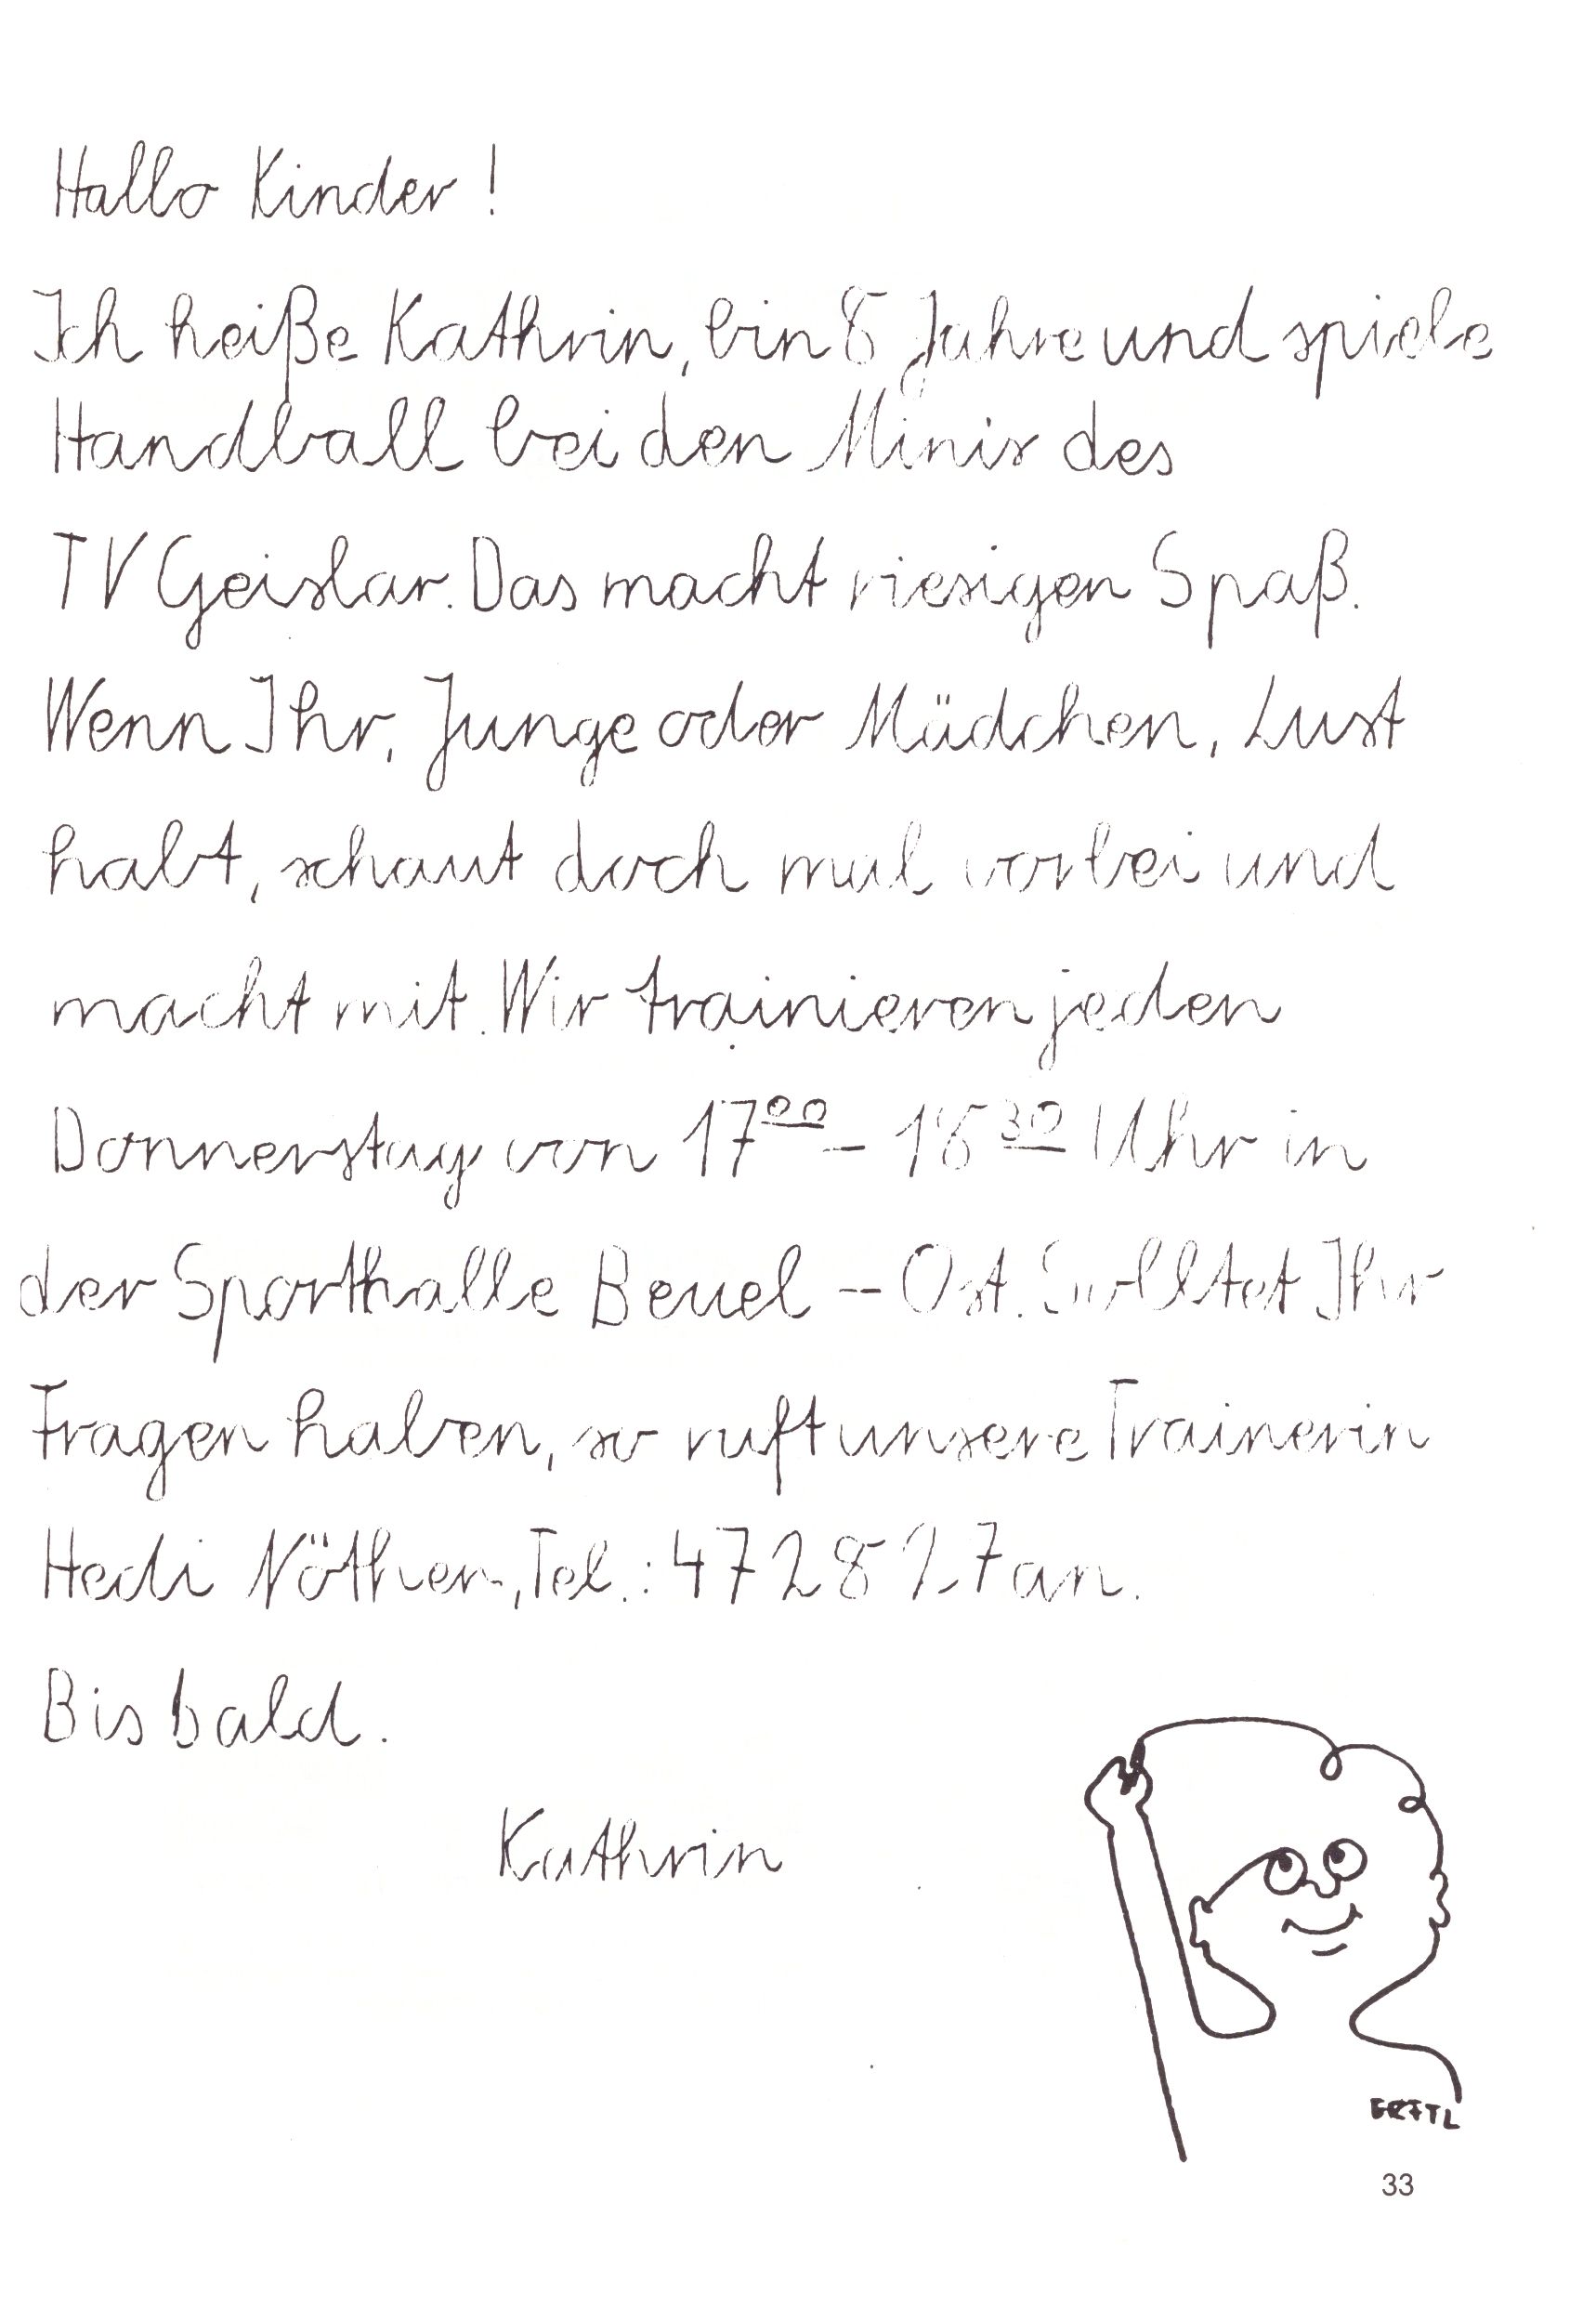 Hallo Kinder!
Ich heiße Kathrin, bin 8 Jahre und spiele
Handball bei den Minis des
TV Geislar. Das macht riesigen Spaß.
Wenn Ihr, Junge oder Mädchen, Lust
habt, schaut doch mal vorbei und
macht mit. Wir trainieren jeden
Donnerstag von 17⁰⁰ – 18³⁰ Uhr in
der Sporthalle Beuel – Ost. Solltet Ihr
Fragen haben, so ruft unsere Trainerin
Hedi Nöthen, Tel.: 472827 an.
Bis bald.
Kathrin
33